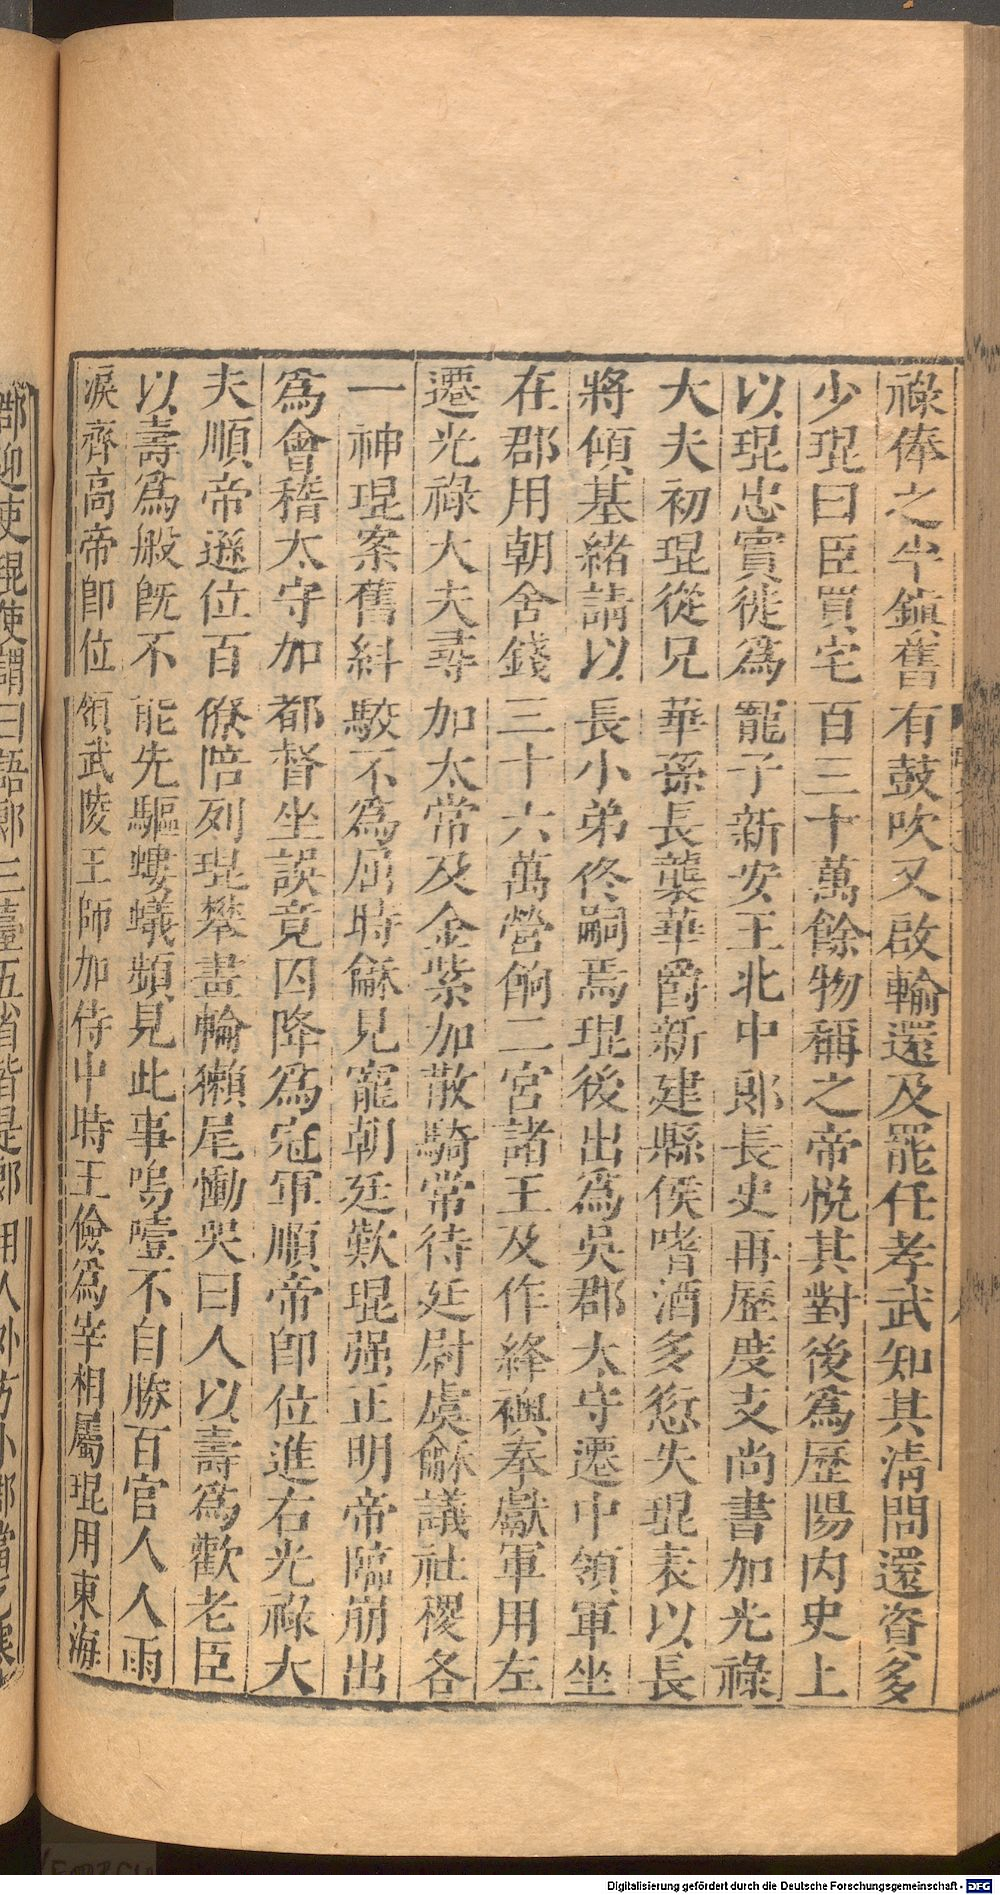 祿俸之半鎮舊有鼓吹又啟輸還及罷任孝武知其清問還資多
少琨曰臣買宅百三十萬餘物稱之帝悅其對後爲歷陽內史上
以琨忠實徙爲寵子新安王北中郎長史再歷度支尚書加光祿
大夫初琨從兄華孫長襲華爵新建縣侯嗜酒多愆失琨表以長
將傾基緒請以長小弟佟嗣焉琨後出爲吳郡太守遷中領軍坐
在郡用朝舍錢三十六萬營餉二宮諸王及作絳襖奉獻軍用左
遷光祿大夫尋加太常及金紫加散騎常待廷尉虞龢議社稷各
一神琨案舊糾駮不爲屈時龢見寵朝廷歎琨强正明帝臨崩出
爲會稽太守加都督坐誤竟囚降爲冠軍順帝卽位進右光祿大
夫順帝遜位百僚陪列琨攀畫輪獺尾慟哭曰人以壽爲歡老臣
以壽爲慼旣不能先驅螻蟻頻見此事嗚噎不自勝百官人人雨
淚齊高帝卽位領武陵王師加侍中時王儉爲宰相屬琨用東海
郎迎使琨使謂曰語郎三臺五省皆是郎用人外方小郡當乞寒
Digitalisierung gefördert durch die Deutsche Forschungsgemeinschaft - DFG